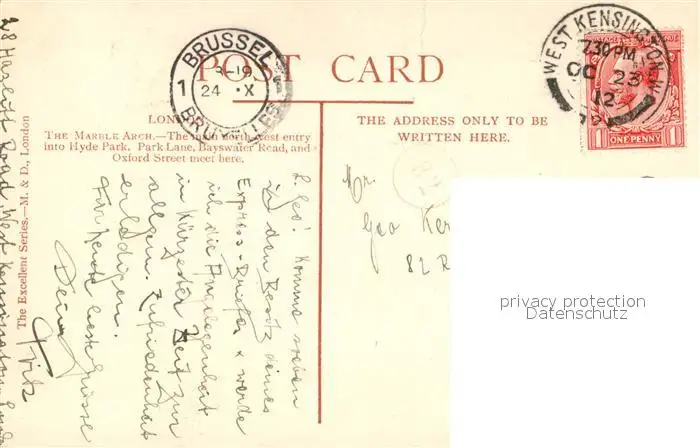 POST CARD
BRUSSEL
1 8-19 1
24 X
BRUXELLES
WEST KENSINGTON.W.
7.30 PM
OC 23
12
1 ONE PENNY 1
LONDON
THE MARBLE ARCH.—The main north-west entry
into Hyde Park. Park Lane, Bayswater Road, and
Oxford Street meet here.
THE ADDRESS ONLY TO BE
WRITTEN HERE.
The Excellent Series.—M. & D., London
28 Road, West Kensington
L. Geo! Komme soeben
in den Besitz deines
Express-Briefes & werde
ich die Angelegenheit
in kürzester Zeit zur
allgem. Zufriedenheit
erledigen.
Für heute beste Grüsse
Dein
Fritz
Mr.
Geo Ker
82 R
privacy protection
Datenschutz